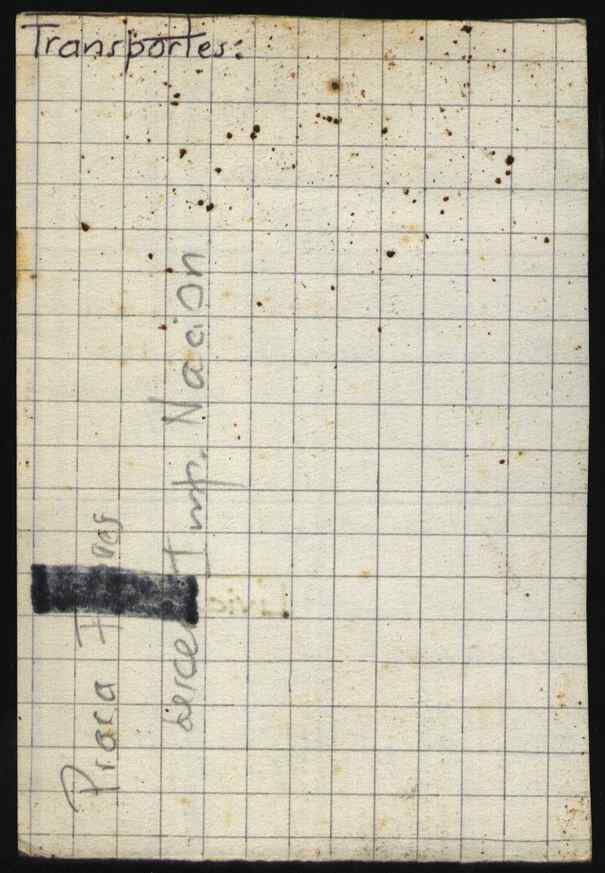 Transportes:
Praca
dice Imp. Nacion